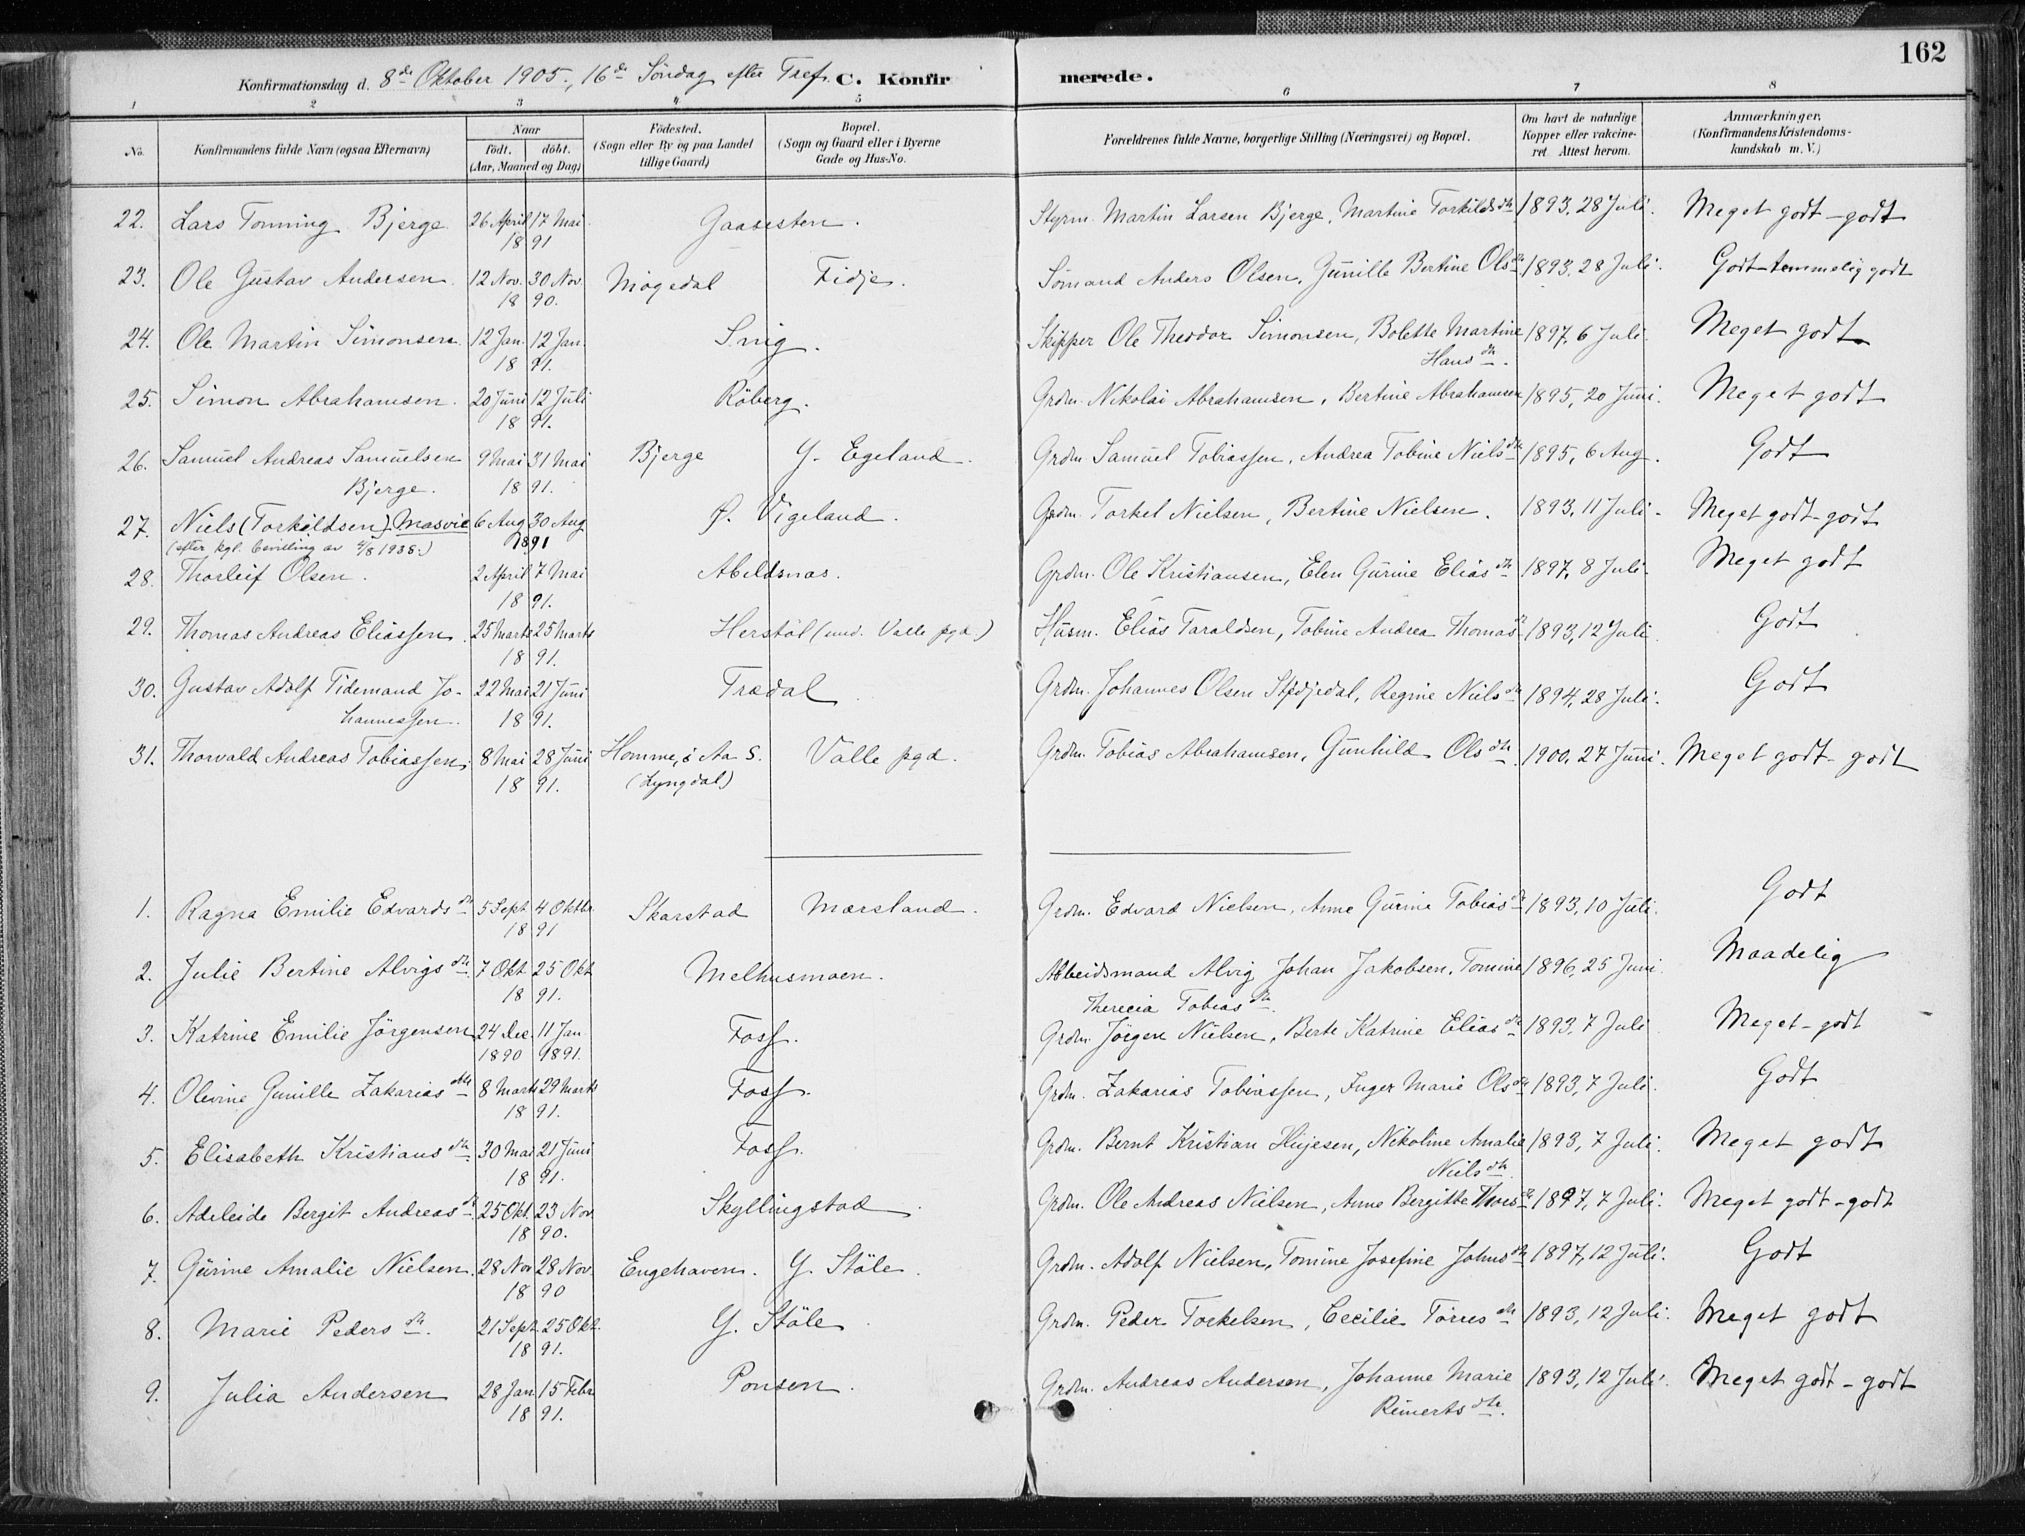 162
Konfirmationsdag d. 8de Oktober 1905, 16de Søndag efter Tref. C. Konfirmerede.
1 2 3 4 5 6 7 8
No. Konfirmandens fulde Navn (ogsaa Efternavn) Naar födt. döbt. (Aar, Maaned og Dag) Födested. (Sogn eller By og paa Landet tillige Gaard) Bopæl. (Sogn og Gaard eller i Byerne Gade og Hus-No. Forældrenes fulde Navne, borgerlige Stilling (Næringsvei) og Bopæl. Om havt de naturlige Kopper eller vakcineret. Attest herom. Anmærkninger. (Konfirmandens Kristendomskundskab m. V.)
22. Lars Tonning Bjerge 26 April 17 Mai Gaasesten. Styrm. Martin Larsen Bjerge, Martine Torkildsdtr 1893, 28 Juli. Meget godt - godt
1891
23. Ole Gustav Andersen 12 Nov. 30 Nov. Mogedal Fidje. Sömand Anders Olsen, Gunille Bertine Olsdtr 1893, 28 Juli. Godt - temmelig godt
1890.
24. Ole Martin Simonsen 12 Jan. 12 Jan. Snig. Skipper Ole Theodor Simonsen, Bolette Martine 1897, 6 Juli. Meget godt
1891. Hansdtr.
25. Simon Abrahamsen. 20 Juni 12 Juli Röberg. Grdm. Nikolai Abrahamsen, Bertine Abrahamsen 1895, 20 Juni. Meget godt
1891.
26. Samuel Andreas Samuelsen 9 Mai 31 Mai Bjerge Y. Egeland. Grdm. Samuel Tobiassen, Andrea Tobine Nielsdtr 1895, 6 Aug. Godt
Bjerge. 1891.
27. Niels (Torkildsen) Masvie 6 Aug 30 Aug Ø. Vigeland. Grdm. Torkel Nielsen, Bertine Nielsen. 1893, 11 Juli. Meget godt - godt
(efter kgl. bevilling av 4/8 1938.) 1891
28. Thorleif Olsen. 2 April 7 Mai Abeldsnas. Grdm. Ole Kristiansen, Elen Gurine Eliasdtr 1897, 8 Juli. Meget godt
1891.
29. Thomas Andreas Eliassen. 25 Marts 25 Marts Herstöl (und. Valle pgd.) Husm. Elias Taraldsen, Tobine Andrea Thomasdtr 1893, 12 Juli. Godt
1891.
30. Gustav Adolf Tidemand Jo- 22 Mai 21 Juni Trædal Grdm. Johannes Olsen, Regine Nielsdtr 1894, 28 Juli. Godt
hannessen. 1891.
31. Thorvald Andreas Tobiassen. 8 Mai 28 Juni Homme, i Aa S. Valle pgd. Grdm. Tobias Abrahamsen, Gunhild Olsdtr 1900, 27 Juni. Meget godt - godt
1891. (Lyngdal)
1. Ragna Emilie Edvardsdtr 5 Sept 4 Oktbr. Skarstad Marsland. Grdm. Edvard Nielsen, Anne Gurine Tobiasdtr 1893, 10 Juli. Godt
1891
2. Julie Bertine Alvigsdtr. 7 Okt 25 Okt Melhusmoen. Arbeidsmand Alvig Johan Jakobsen, Tomine 1896, 25 Juni. Maadelig
1891. Therecia Tobiasdtr.
3. Katrine Emilie Jörgensen 24 Dec 11 Jan Foss. Grdm. Jörgen Nielsen, Berte Katrine Eliasdtr 1893, 7 Juli Meget - godt
1890 1891.
4. Olevine Gunille Zakariasdtr 8 Marts 29 Marts Foss. Grdm. Zakarias Tobiassen, Inger Marie Olsdtr 1893, 7 Juli. Godt
1891.
5. Elisabeth Kristiansdtr. 30 Mai 21 Juni Foss. Grdm. Bernt Kristian, Nikoline Amalie 1893, 7 Juli. Meget godt
1891. Nielsdtr.
6. Adeleide Bergit Andreasdtr. 25 Okt 23 Nov. Skyllingstad. Grdm. Ole Andreas Nielsen, Anne Bergitte 1897, 7 Juli. Meget godt - godt
1890.
7. Gurine Amalie Nielsen. 28 Nov 28 Nov. Engehaven. Y. Stöle. Grdm. Adolf Nielsen, Tomine Josefine Johnsdtr 1897, 12 Juli. Godt
1890
8. Marie Pedersdtr. 21 Sept. 25 Okt. Y. Stöle. Grdm. Peder Torkelsen, Cecilie Törresdtr 1893, 12 Juli. Meget godt
1891.
9. Julia Andersen 28 Jan 15 Febr Ponsen. Grdm. Andreas Andersen, Johanne Marie 1893, 12 Juli. Meget godt - godt
1891. Reinertsdtr.